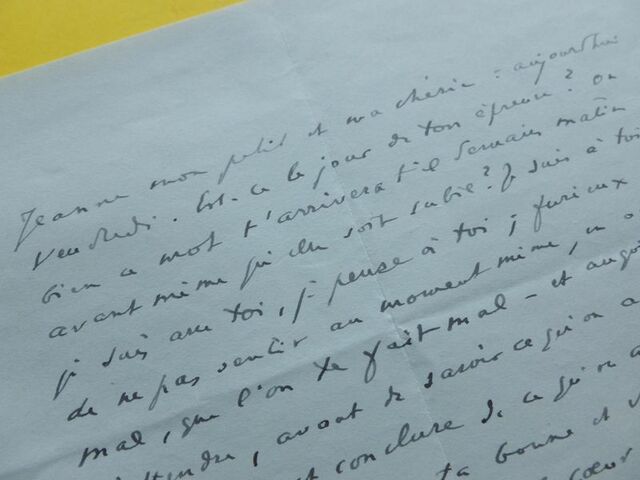 Jeanne mon petit et ma chérie : aujourdhui
Vendredi. Est-ce le jour de ton épreuve ? ou
bien ce mot t'arrivera t'il demain matin
avant même qu'elle soit subie ? Je suis à toi
je suis avec toi, je pense à toi ; furieux
de ne pas sentir au moment même, un
mal, que l'on te fait mal - et
attendre, avant de savoir ce qu'on a
conclure de ce qu'on a
ta bonne et
cœur